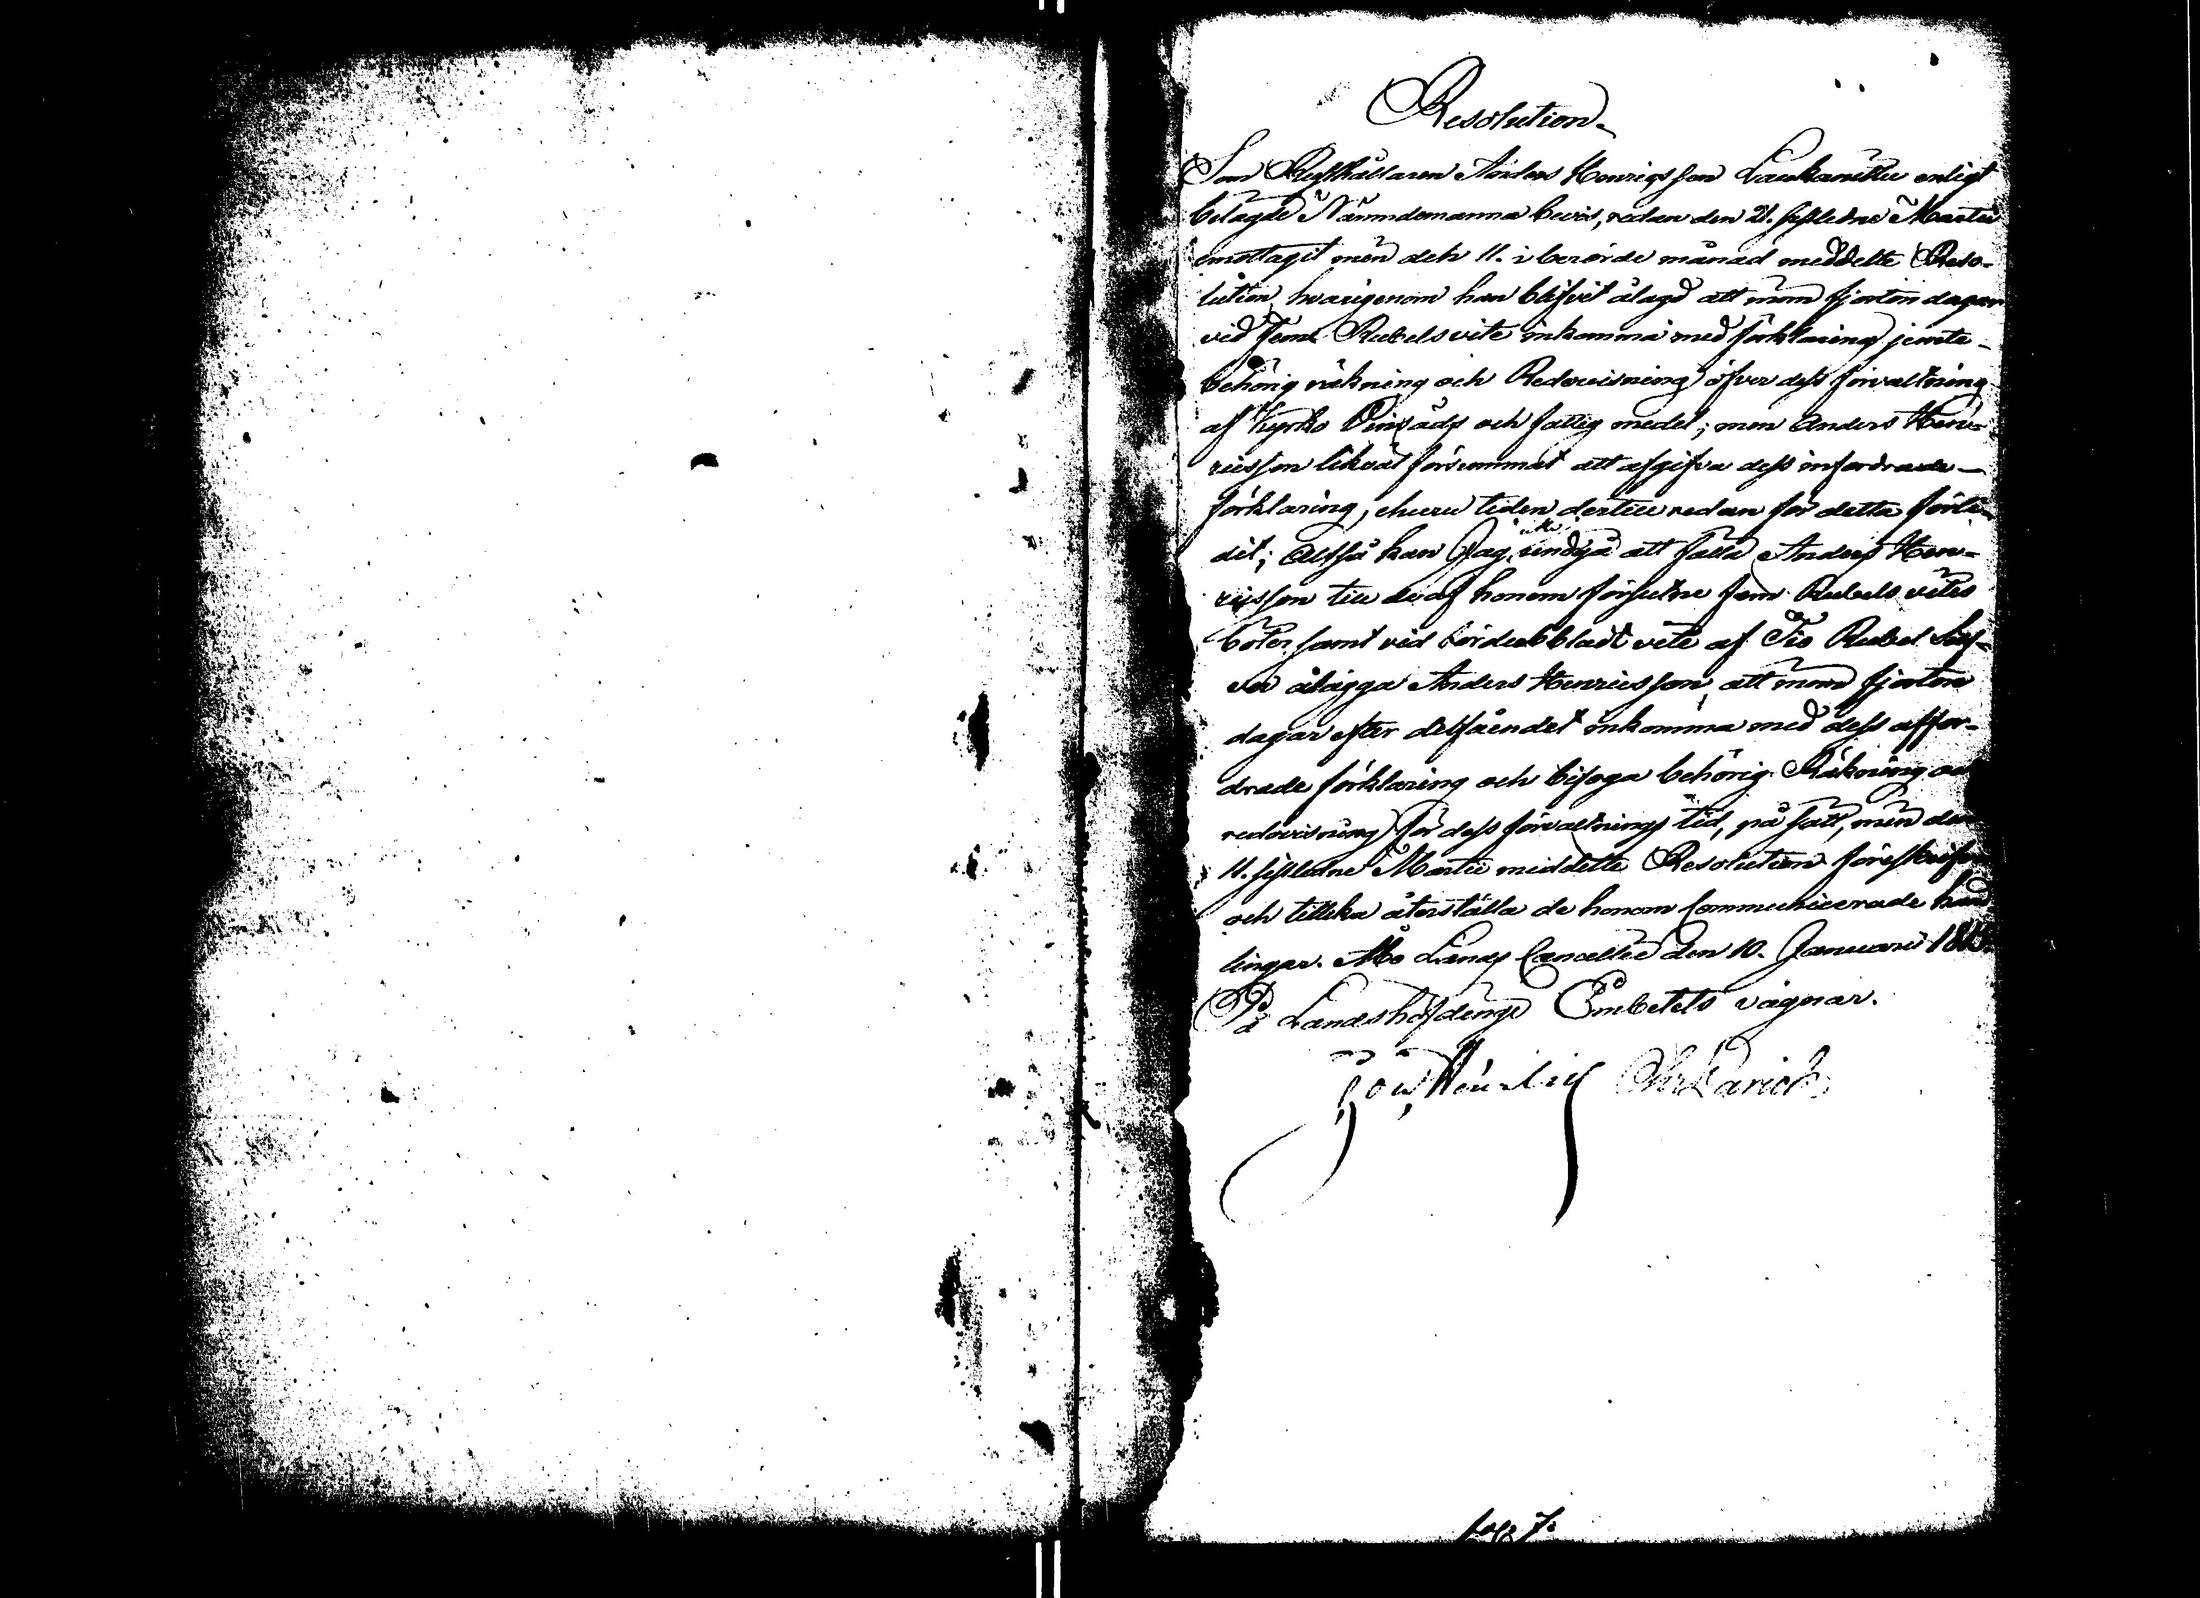 Resolution
Som Rusthållaren Anders Henrigsson Laukanittu enligt
bilagde Nämndemanna bevis, redan den 21. sistledne Martii
emottagit min den 11. i berörde månad meddelte Reso-
lution, hvarigenom han blifvit ålagd att inom fjorton dagar
vid Fem Rubels vite inkomma med förklaring jemte
behörig räkning och Redovisning öfver dess förvaltning
af Kyrko och fattig medel; men Anders Hen-
ricsson likväl försummat att afgifva dess infordrade
förklaring, ehuru tiden dertill redan för detta förli-
dit; Altså kan Jag icke undgå att fälla Anders Hen-
ricsson till de af honom försutne Fem Rubels vites
böter samt vid vite af Tio Rubel Silf-
ver ålägga Anders Henricsson, att inom fjorton
dagar efter delfåendet inkomma med dess affor-
drade förklaring och bifoga behörig Räkning och
redovisning för dess förvaltnings tid, på sätt, min den
11. sistledne Martii meddelte Resolution föreskrifver
och tillika återställa de honom Communicerade hand-
lingar. Åbo Lands Cancellie den 10. Januarii
På Landshöfdinge Embetets vägnar.